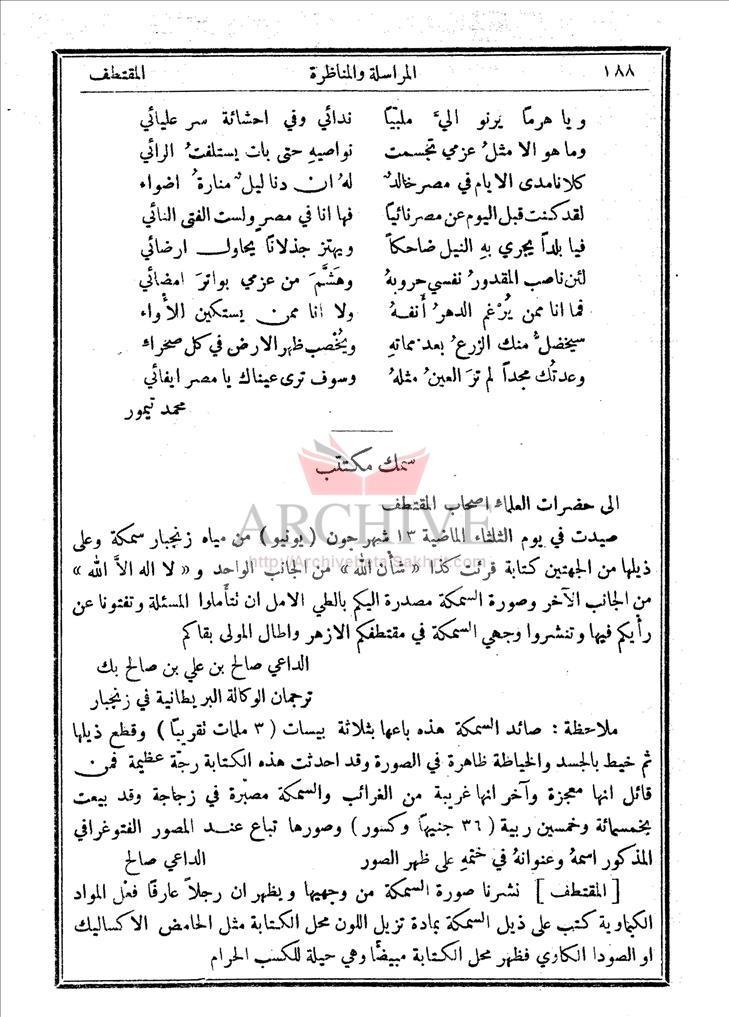 ١٨٨ المراسلة والمناظرة المقتطف
ويا هرما يرنو اليَّ ملبيًا ندائي وفي احشائهِ سر عليائي
وما هو الا مثلُ عزمي تجسمت نواصيهِ حتى بات يستلفتُ الرائي
كلانا مدى الايام في مصر خالدٌ لهُ ان دنا ليلٌ منارةُ اضواء
لقد كنت قبل اليوم عن مصر نائيًا فها انا في مصرٍ ولست الفتى النائي
فيا بلداً يجري بهِ النيل ضاحكاً ويهتز جذلاناً يحاول ارضائي
لئن ناصب المقدورُ نفسي حروبهُ وهَشَّمَ من عزمي بواترَ امضائي
فما انا ممن يُرْغم الدهرُ أَنفهُ ولا انا ممن يستكين لِلأْواء
سيخضلُّ منك الزرعُ بعد مماتهِ ويُخْصب ظهر الارض في كل صحراء
وعدتُك مجداً لم ترَ العينُ مثلهُ وسوف ترى عيناك يا مصر ايفائي
محمد تيمور
سمك مكتتب
الى حضرات العلماء اصحاب المقتطف
صيدت في يوم الثلثاء الماضية ١٣ شهر جون (يونيو) من مياه زنجبار سمكة وعلى
ذيلها من الجهتين كتابة قرئت كذا «شأن الله» من الجانب الواحد و «لا اله الاَّ الله»
من الجانب الآخر وصورة السمكة مصدرة اليكم بالطي الامل ان نتأملوا المسئلة وتفتونا عن
رأيكم فيها وتنشروا وجهي السمكة في مقتطفكم الازهر واطال المولى بقاكم
الداعي صالح بن علي بن صالح بك
ترجمان الوكالة البريطانية في زنجبار
ملاحظة : صائد السمكة هذه باعها بثلاثة بيسات (٣ ملمات تقريبًا) وقطع ذيلها
ثم خيط بالجسد والخياطة ظاهرة في الصورة وقد احدثت هذه الكتابة رجّة عظيمة فمن
قائل انها معجزة وآخر انها غريبة من الغرائب والسمكة مصبّرة في زجاجة وقد بيعت
بخمسمائة وخمسين ربية (٣٦ جنيهًا وكسور) وصورها تباع عند المصور الفتوغرافي
المذكور اسمهُ وعنوانهُ في ختمهِ على ظهر الصور الداعي صالح
[المقتطف] نشرنا صورة السمكة من وجهيها ويظهر ان رجلاً عارفًا فعْل المواد
الكيماوية كتب على ذيل السمكة بمادة تزيل اللون محل الكتابة مثل الحامض الاكساليك
او الصودا الكاوي فظهر محل الكتابة مبيضًا وهي حيلة للكسب الحرام
ARCHIVE